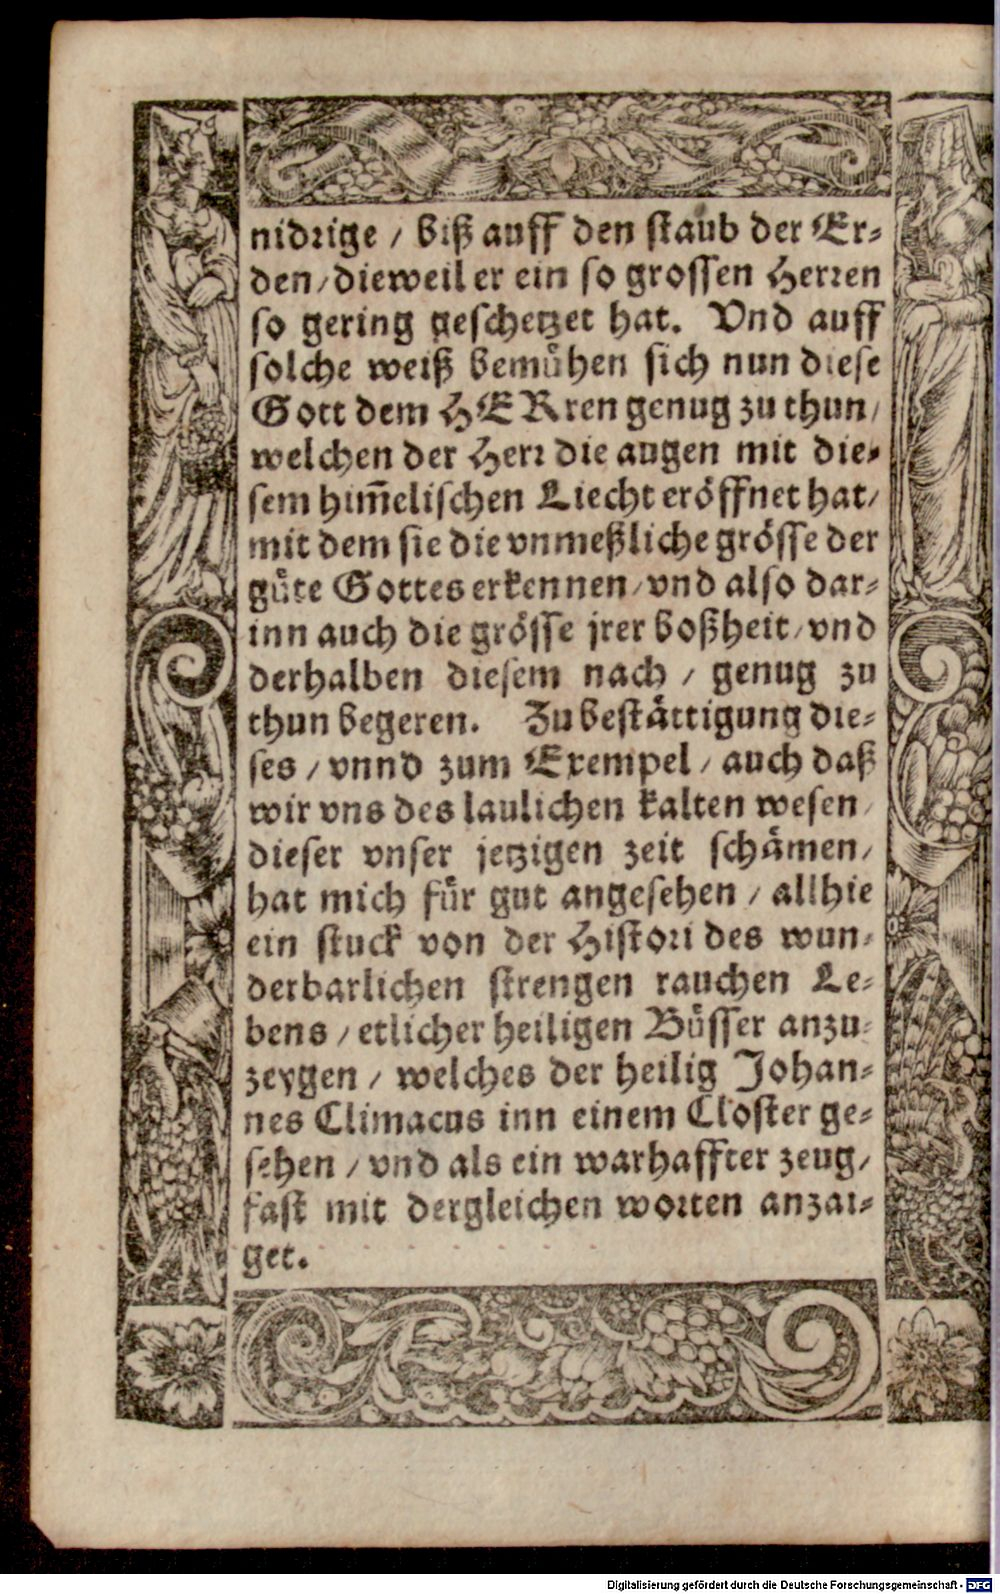 nidrige / biß auff den staub der Er⸗
den / dieweil er ein so grossen Herren
so gering geschetzet hat. Vnd auff
solche weiß bemühen sich nun diese
Gott dem HERren genug zu thun /
welchen der Herr die augen mit die⸗
sem him̃elischen Liecht eröffnet hat /
mit dem sie die vnmeßliche grösse der
güte Gottes erkennen / vnd also dar⸗
inn auch die grösse jrer boßheit / vnd
derhalben diesem nach / genug zu
thun begeren. Zu bestättigung die⸗
ses / vnnd zum Exempel / auch daß
wir vns des laulichen kalten wesen /
dieser vnser jetzigen zeit schämen /
hat mich für gut angesehen / allhie
ein stuck von der Histori des wun⸗
derbarlichen strengen rauchen Le⸗
bens / etlicher heiligen Büsser anzu⸗
zeygen / welches der heilig Johan⸗
nes Climacus inn einem Closter ge⸗
sehen / vnd als ein warhaffter zeug /
fast mit dergleichen worten anzai⸗
get.
Digitalisierung gefördert durch die Deutsche Forschungsgemeinschaft - DFG